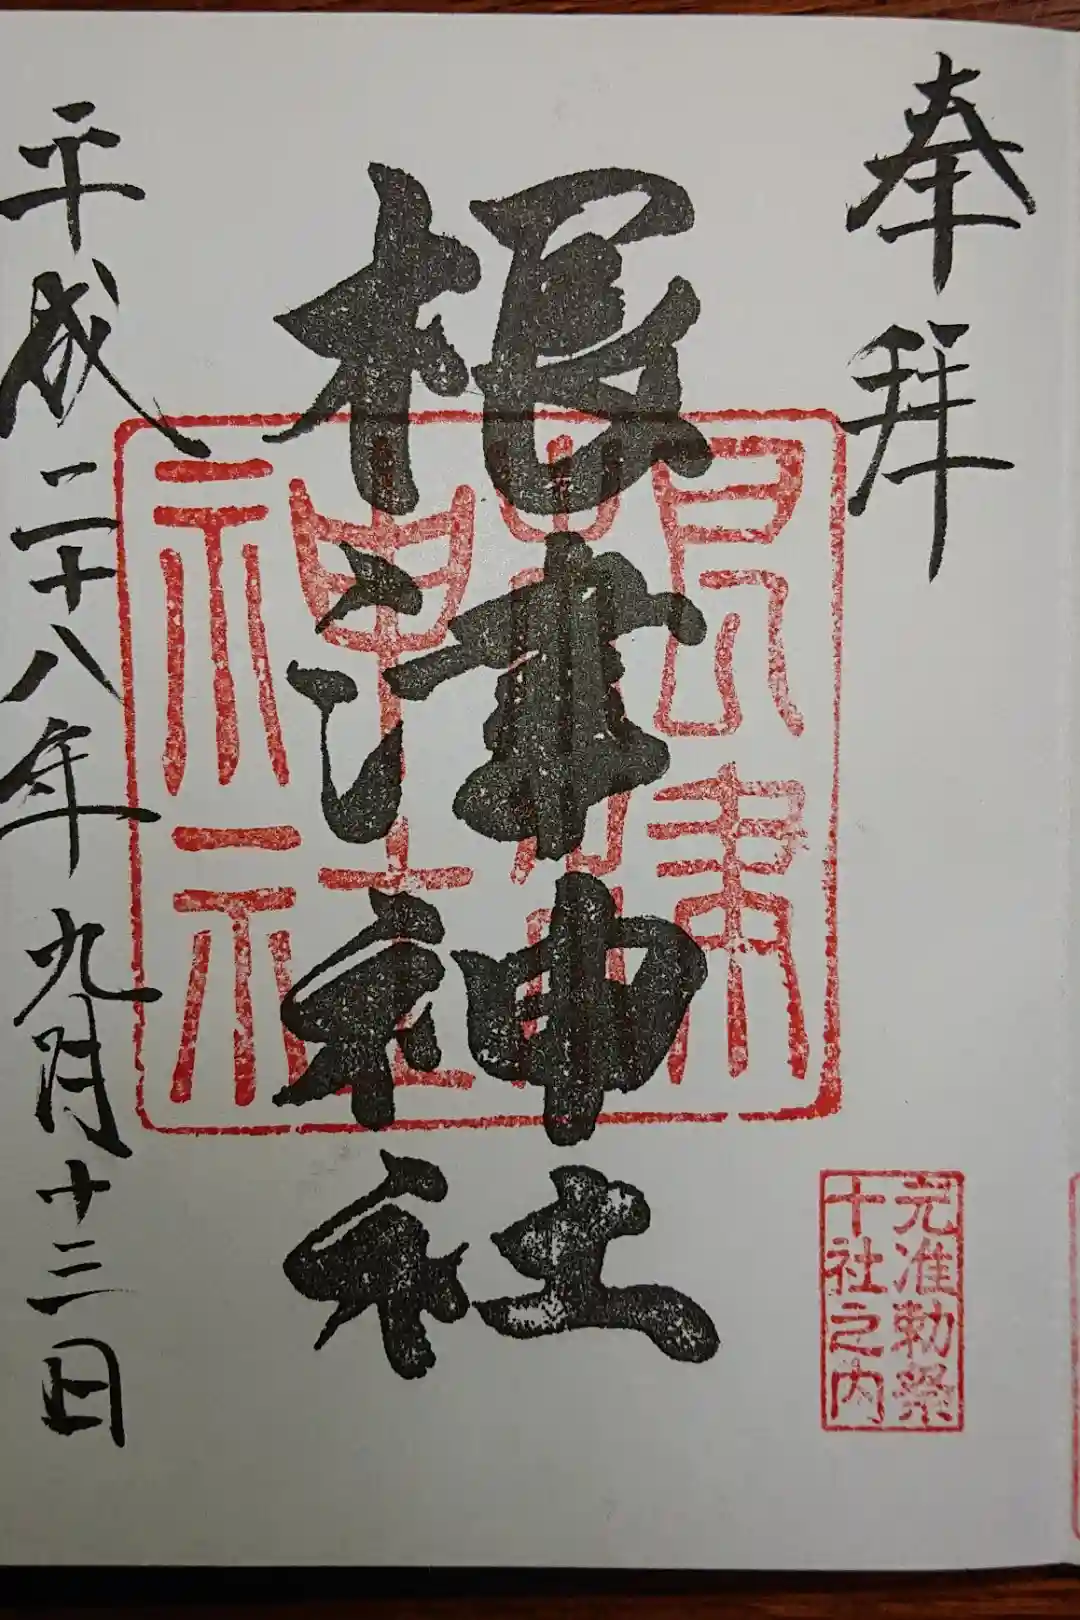 奉拝
元准勅祭
十社之内
根津神社
根津
神社
平成二十八年九月十三日